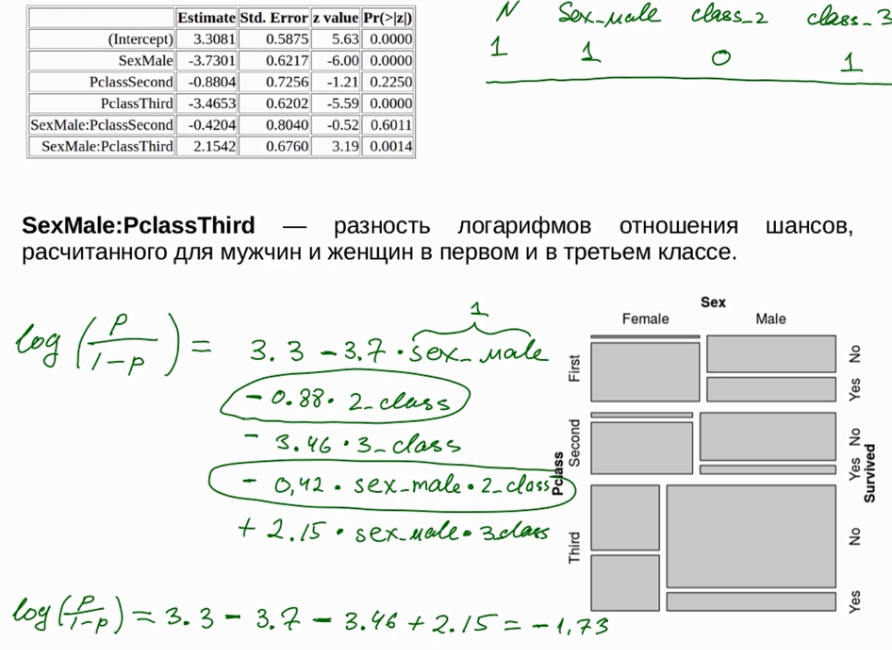 Estimate Std. Error z value Pr(>|z|)
(Intercept) 3.3081 0.5875 5.63 0.0000
SexMale -3.7301 0.6217 -6.00 0.0000
PclassSecond -0.8804 0.7256 -1.21 0.2250
PclassThird -3.4653 0.6202 -5.59 0.0000
SexMale:PclassSecond -0.4204 0.8040 -0.52 0.6011
SexMale:PclassThird 2.1542 0.6760 3.19 0.0014
N Sex_male class_2 class_3
1 1 0 1
SexMale:PclassThird — разность логарифмов отношения шансов,
расчитанного для мужчин и женщин в первом и в третьем классе.
1
log (p/1-p) = 3.3 - 3.7 · sex_male
- 0.88 · 2_class
- 3.46 · 3_class
- 0,42 · sex_male · 2_class
+ 2.15 · sex_male · 3class
log (p/1-p) = 3.3 - 3.7 - 3.46 + 2.15 = -1,73
Sex
Female Male
First
No
Yes
Second
No
Yes
Third
No
Yes
Pclass
Survived